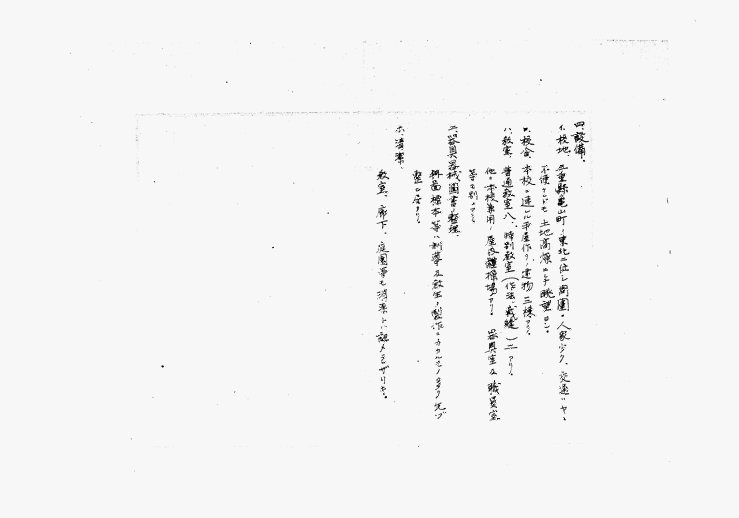 四、設備。
イ、校地、三重縣亀山町ノ東北ニ位シ周圍ニ人家少ク、交通ハヤヽ
不便ナレドモ土地高燥ニシテ眺望ヨシ。
ロ、校舎、本校ニ連レル平屋作リノ建物三棟アリ。
ハ、教室、普通教室八、特別教室(作法、裁縫)二アリ。
他ニ本校兼用ノ屋内體操場アリ。器具室及職員室
等モ別ニアリ
ニ、器具器械圖書ノ整理、
掛圖標本等ハ教生ノ製作ニカカルモノ多ク
整ヒ居タリ。
ホ、清潔、
教室、廊下、庭園等モ清潔トハ認メラレザリキ。